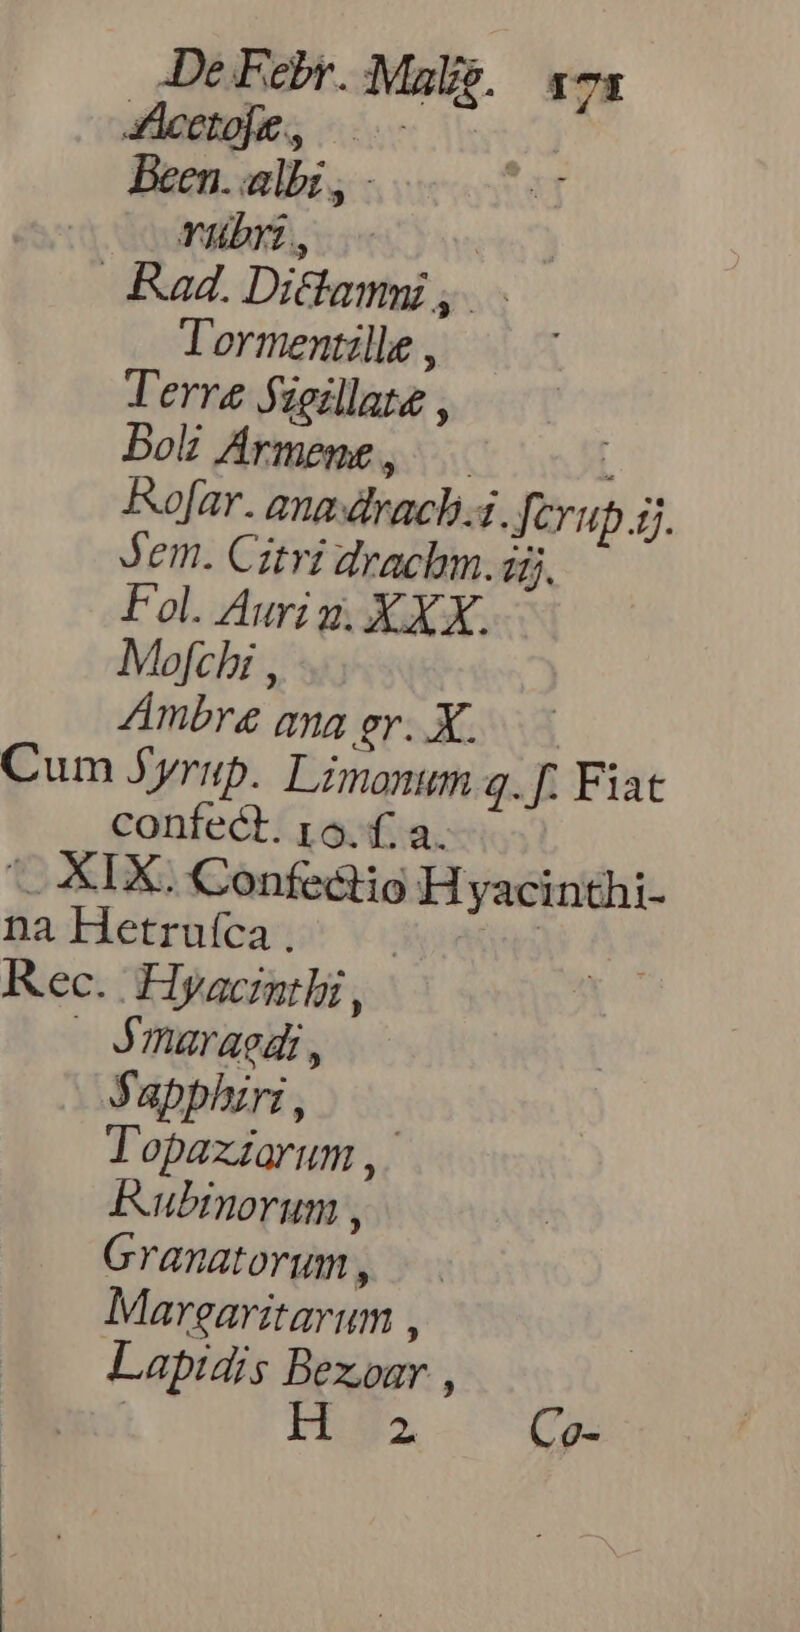 De Febr. Malig. 171
Acetoſæ,
Been. albi,
rubri,
Rad. Dictamni,
Tormentillæ,
Terræ Sigillatæ,
Boli Armenæ,
Roſar. ana drach. i. ſcrup. ij.
Sem. Citri drachm. iij.
Fol. Auri n. XXX.
Moſchi,
Ambræ ana gr. X.
Cum Syrup. Limonum q. ſ. Fiat
confect. 10. ſ. a.
XIX. Confectio Hyacinthi-
na Hetruſca.
Rec. Hyacinthi,
Smaragdi,
Sapphiri,
Topaziorum,
Rubinorum,
Granatorum,
Margaritarum,
Lapidis Bezoar,
H 2 Co-